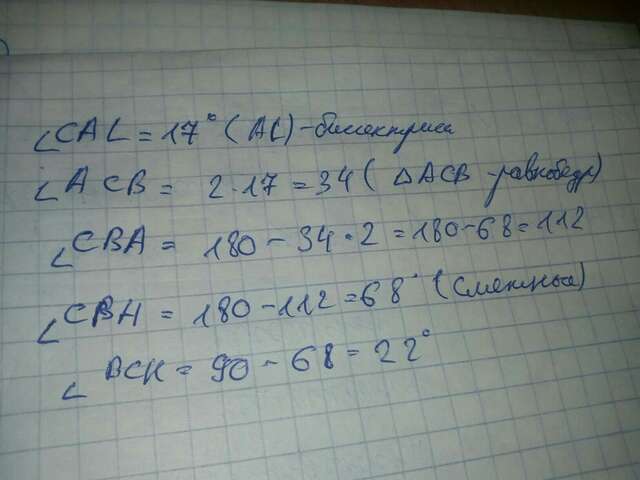 ∠CAL = 17° (AL) - биссектриса
∠ACB = 2·17 = 34 ( △ACB - равнобедр)
∠CBA = 180 - 34·2 = 180-68 = 112
∠CBH = 180 - 112 = 68° (смежные)
∠BCH = 90 - 68 = 22°